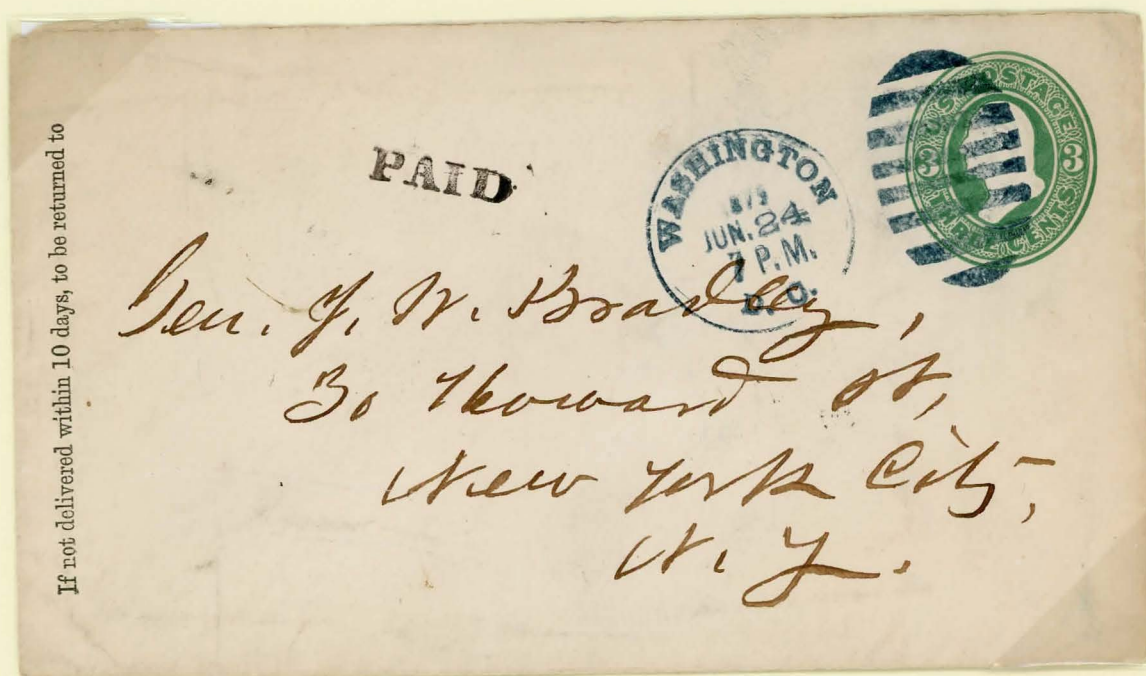 If not delivered within 10 days, to be returned to
PAID
WASHINGTON
JUN. 24
7 P.M.
D.C.
U.S. POSTAGE
3 3
THREE CENTS
Gen. J. W. Bradley,
30 Howard St,
New York City,
N. Y.